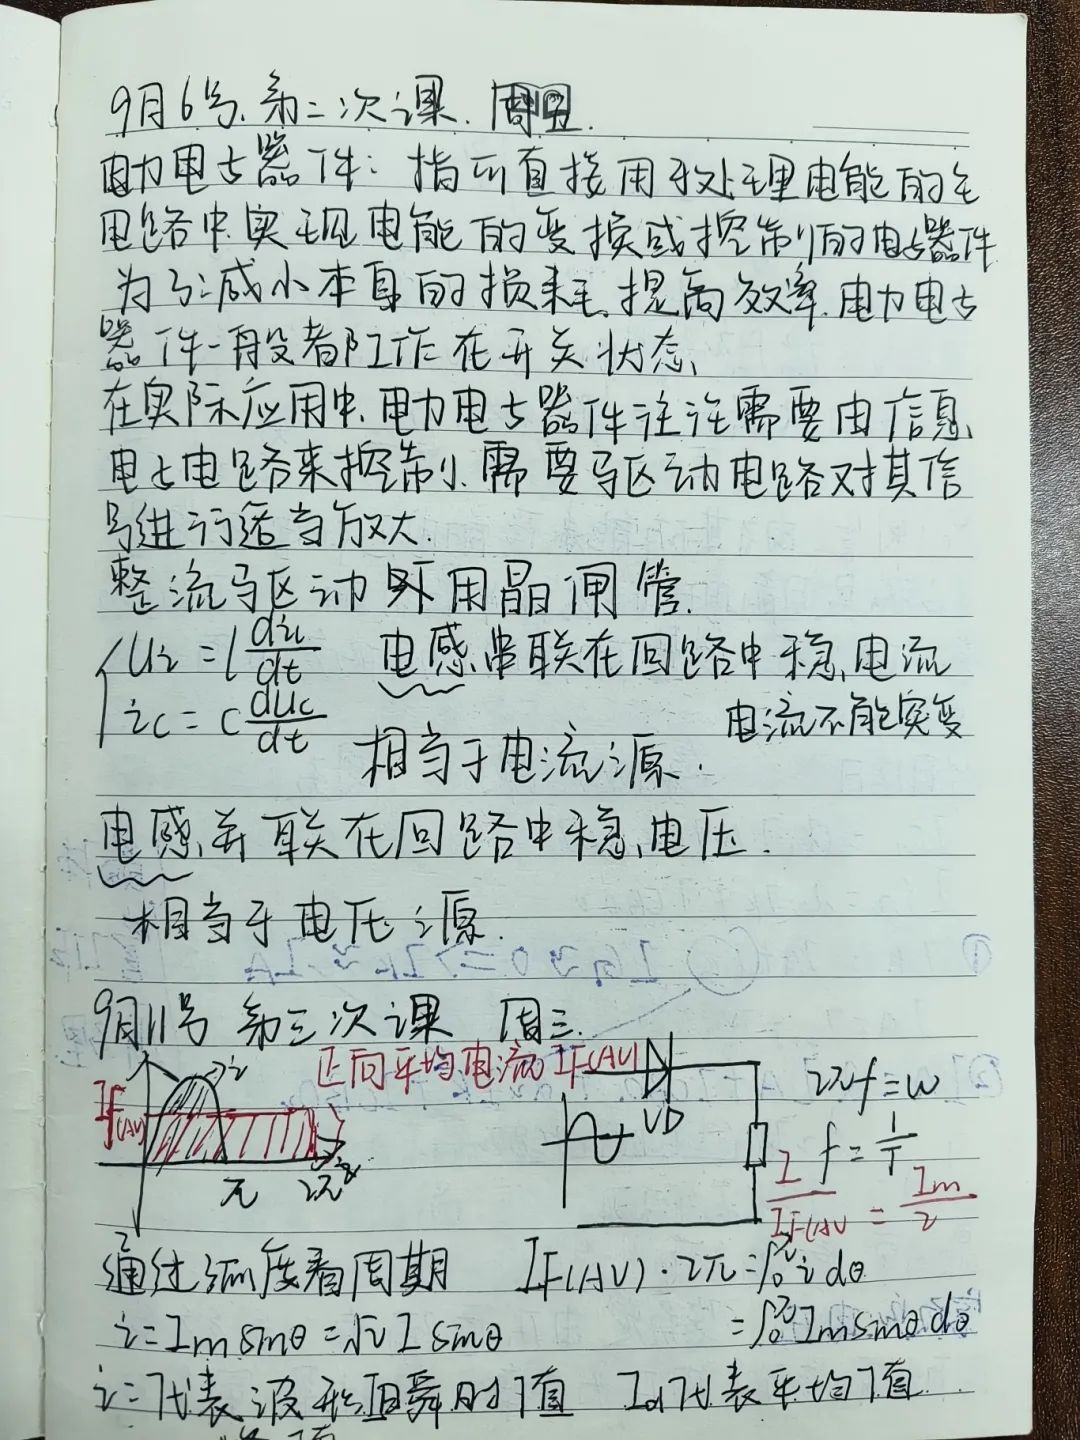 9月6号.第二次课. 周五.
电力电子器件: 指可直接用于处理电能的主
电路中,实现电能的变换或控制的电子器件
为了减小本身的损耗,提高效率,电力电子
器件一般都工作在开关状态,
在实际应用中,电力电子器件往往需要由信息
电子电路来控制,需要驱动电路对其信
号进行适当放大.
整流驱动 用晶闸管.
ui = l diu/dt 电感,串联在回路中稳,电流
电流不能突变
ic = c duc/dt 相当于电流源.
电感,并联在回路中稳,电压.
相当于电压源.
9月11号 第三次课 周三.
正向平均电流 IF(AV)
i
IF(AV)
π 2π
VD
2πf = w
f = 1/T
I/IF(AV = Im/2
通过弧度看周期 IF(AV)·2π = ∫₀^π i dθ
i = Im sinθ = √2 I sinθ = ∫₀^π Im sinθ dθ
i = 代表波形瞬时值 Id代表平均值.